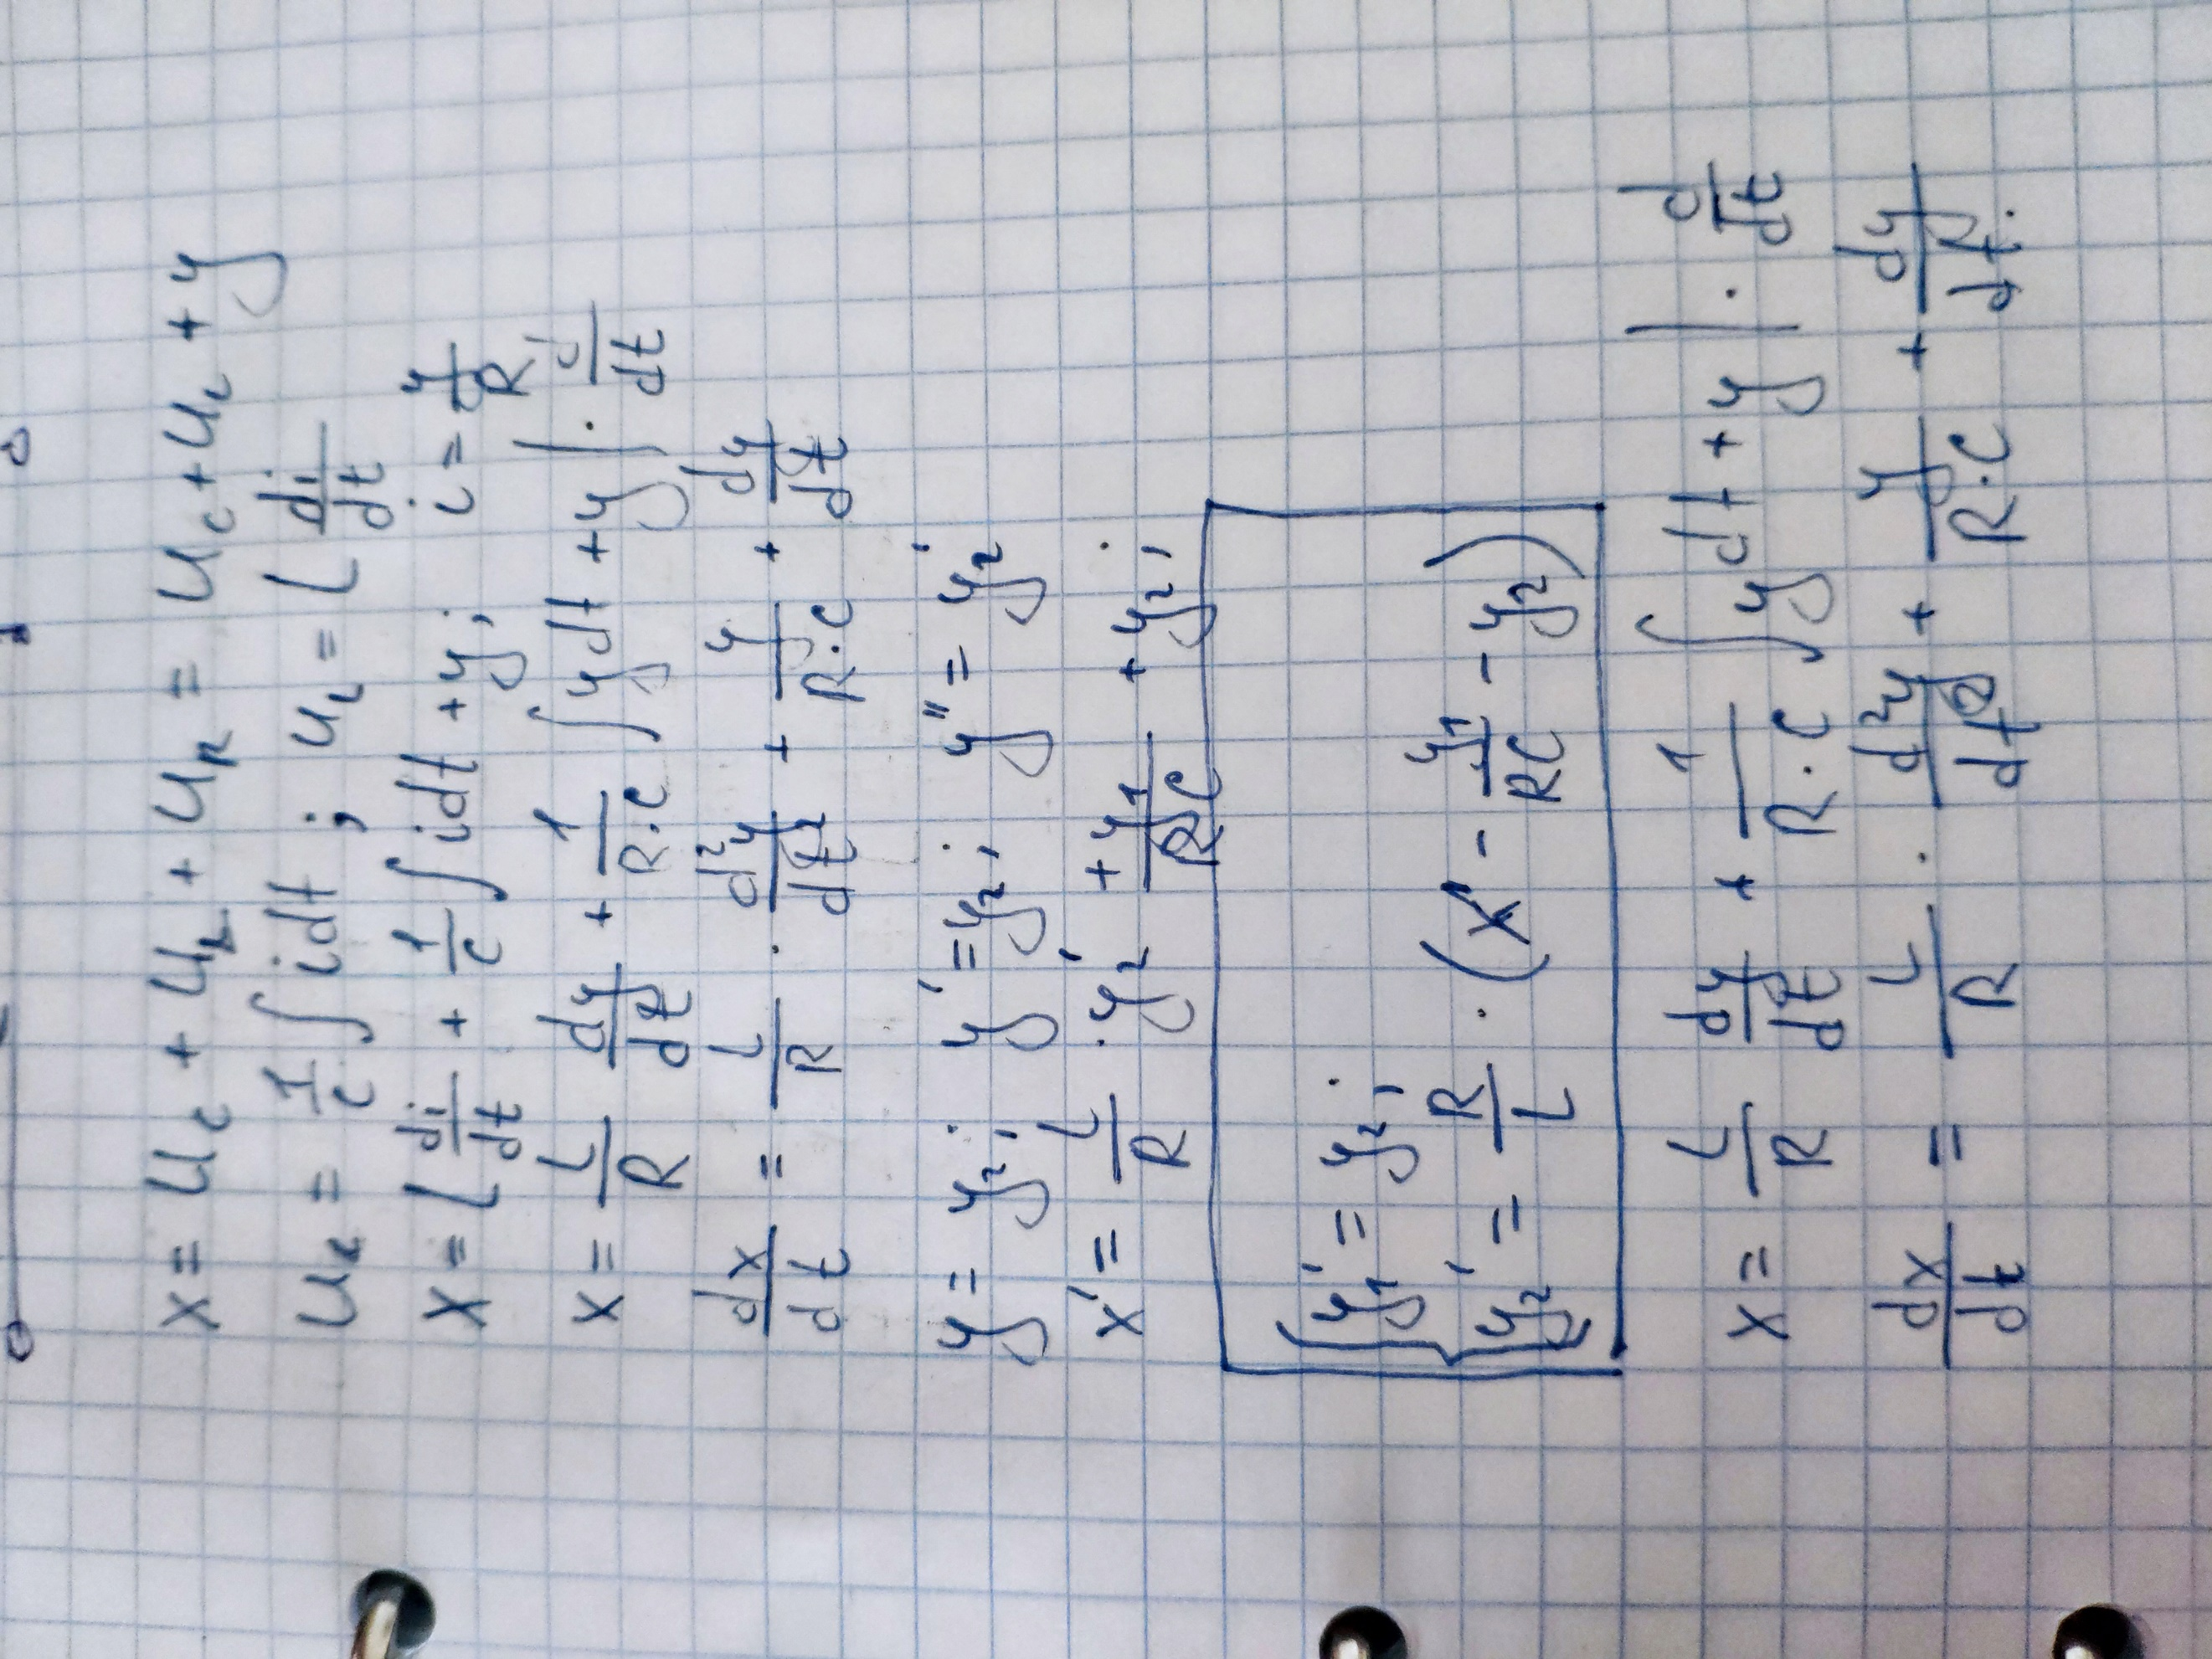 x = u_c + u_L + u_R = u_c + u_L + y
u_L = 1/c ∫ idt ; u_L = L di/dt
x = L di/dt + 1/c ∫ idt + y; i = y/R
x = L/R dy/dt + 1/(R·c) ∫ ydt + y | · d/dt
dx/dt = L/R · d²y/dt² + y/(R·c) + dy/dt
y = y₂; y' = y₂; y'' = y₂'
x' = L/R · y₂' + y₁/(RC) + y₂;
{ y₁' = y₂;
y₂' = R/L · (x' - y₁/(RC) - y₂)
x = L/R dy/dt + 1/(R·c) ∫ ydt + y | · d/dt
dx/dt = L/R · d²y/dt² + y/(R·c) + dy/dt.